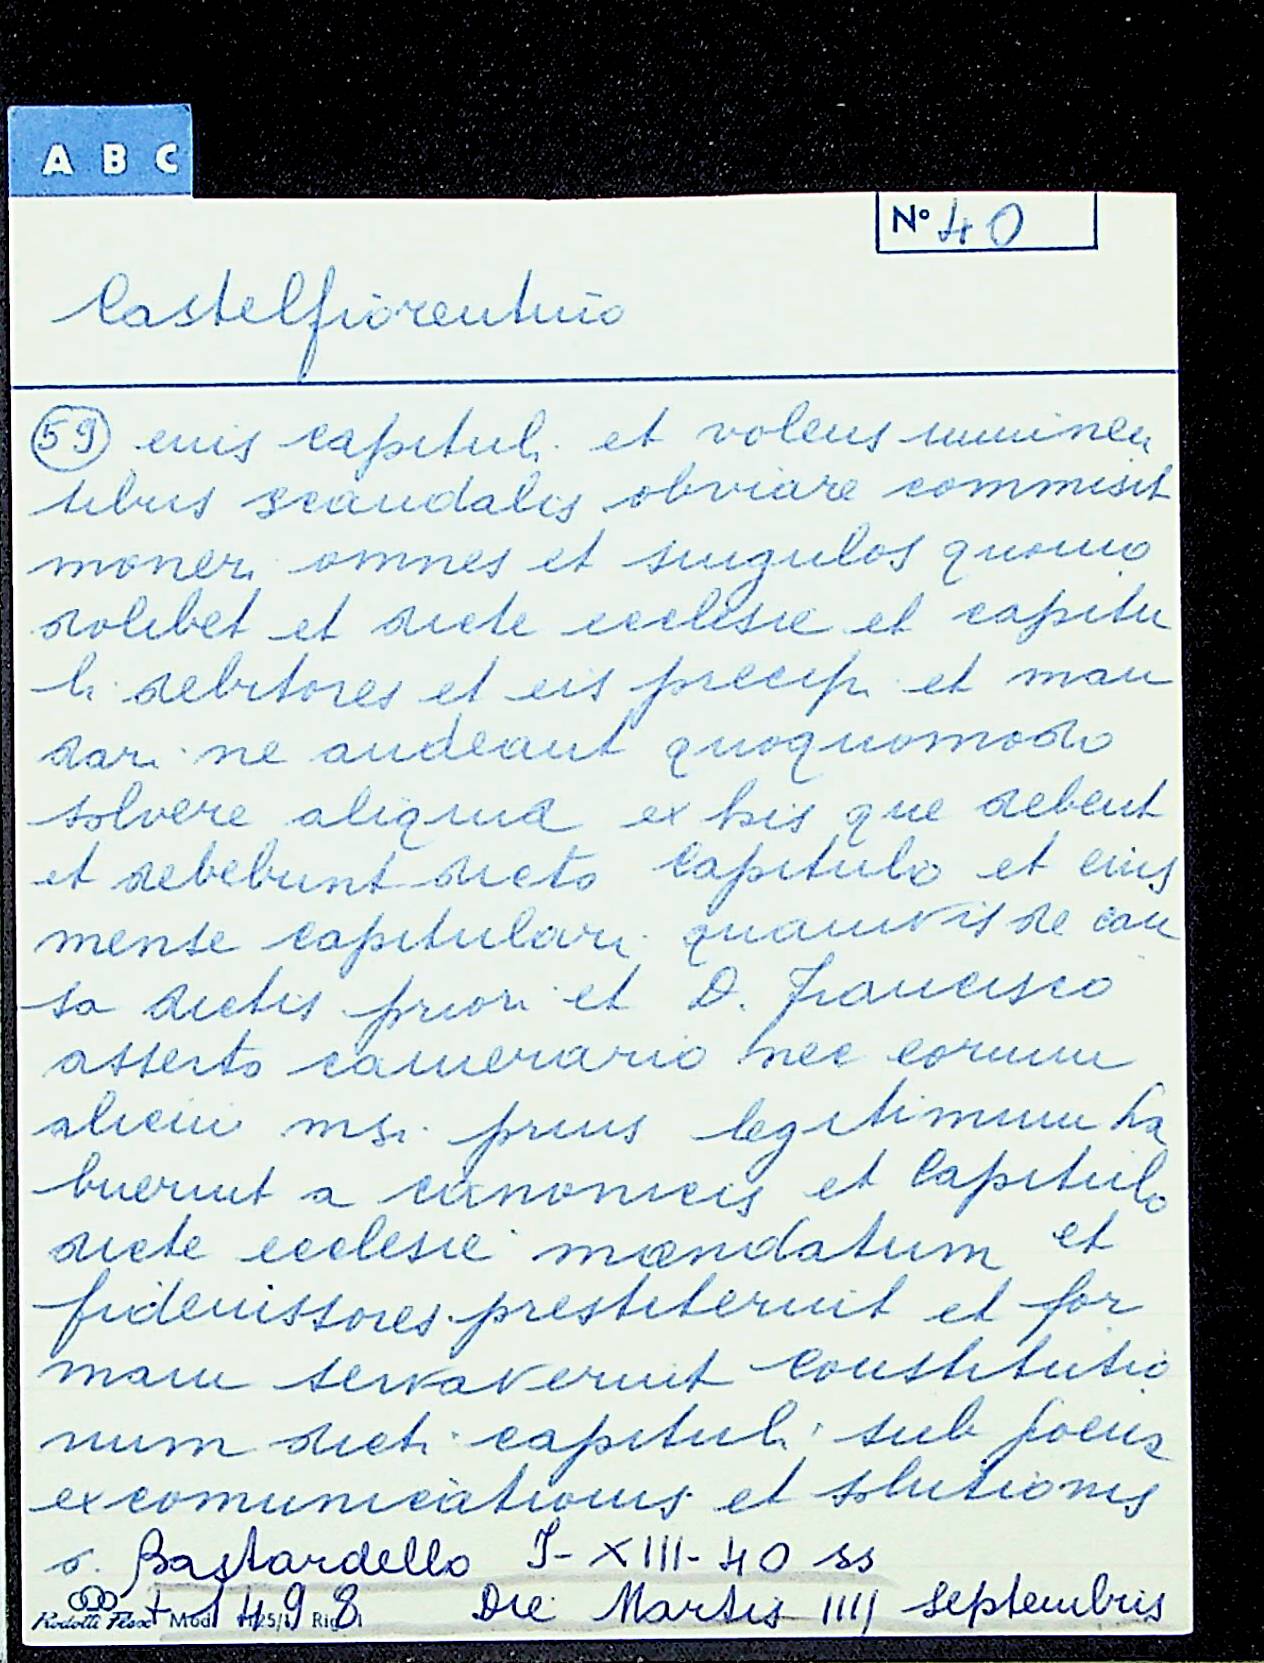 A B C
N° 40
Castelfiorentino
59 euis capituli et volens imminen
tibus scandalis obviare commisit
moneri omnes et singulos quomo
dolibet et dicte ecclesie et capitu
li debitores et eis precipi et man
dari ne audeant quoquomodo
solvere aliquid ex his que debent
et debebunt dicto Capitulo et eius
mense capitulari quamvis de cau
sa dictis priori et D. Francisco
asserto camerario nec eorum
alicui nisi prius legitimum ha
buerint a canonicis et Capitulo
dicte ecclesie mandatum et
fideiussores prestiterint et for
mam servaverint Constitutio
num dicti capituli sub penis
excomunicationis et solutionis
Bastardello I-XIII-40 ss
+ 1498 Die Martis IIII septembris